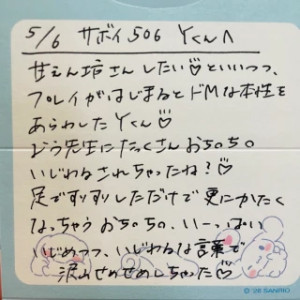 5/6 サボイ506 Yくんへ
甘えん坊さんしたい♡といいつつ、
プレイがはじまるとドMな本性を
あらわしたYくん♡
ゆう先生にたくさんおち○ち○
いじわるされちゃったね！♡
足ですりすりしただけで更にかたく
なっちゃうおち○ち○、いーっぱい
いじめつつ、いじわるな言葉で
沢山せめせめしちゃった♡
© '26 SANRIO